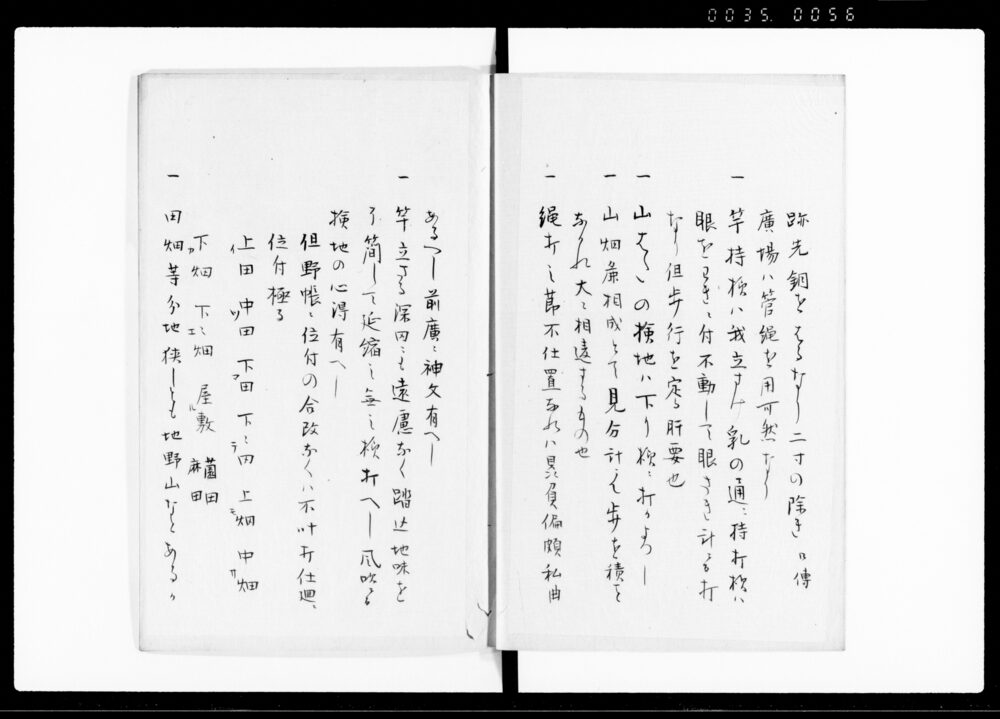 0035. 0056
跡先銅をはるなり二寸の除き口傳
廣場ハ管縄を用可然なり
一 竿持様ハ我立すけ乳の通ニ持打様ハ
眼をふさき付不動して眼さき計ニて打
なり但歩行を定る肝要也
一 山はたの検地ハ下り様ニ打かよろし
一 山畑廉相成とて見分計にて歩を積を
なかれ大ニ相違するもの也
一 縄打之節不仕置なれハ贔負偏頗私曲
あるへし前廣ニ神文有へし
一 竿立さる深田ニも遠慮なく踏込地味を
了簡して延縮之無之様打へし風吹ニハ
検地の心得有へし
但野帳ニ位付の合改なくハ不叶打仕廻、
位付極る
上田 中田 下田 下々田 上畑 中畑
イ ツ マ ラ モ サ
下畑 下々畑 屋敷 藺田 麻田
カ エ ル
一 田畑等分地狭しとも地野山なとあるか